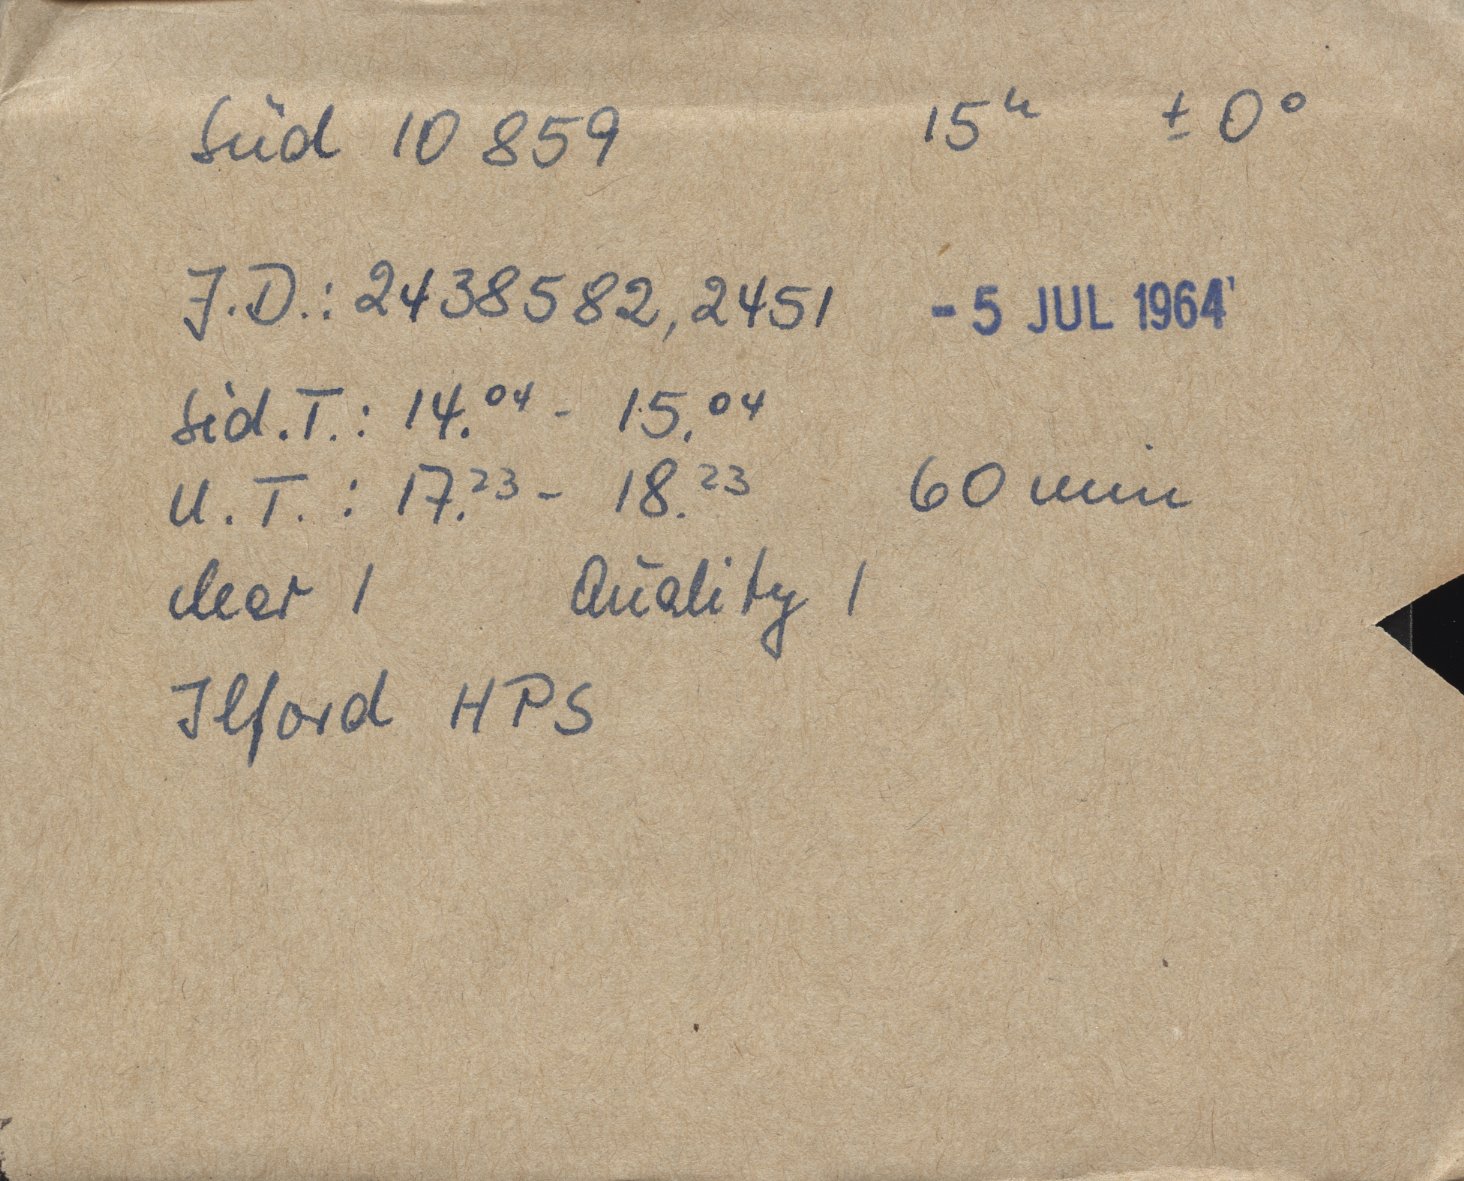 Süd 10 859 15ʰ ± 0°
J.D.: 2438582,2451 - 5 JUL 1964
Sid.T.: 14.⁰⁴ - 15.⁰⁴
U.T.: 17.²³ - 18.²³ 60 min
clear 1 Quality 1
Ilford HPS